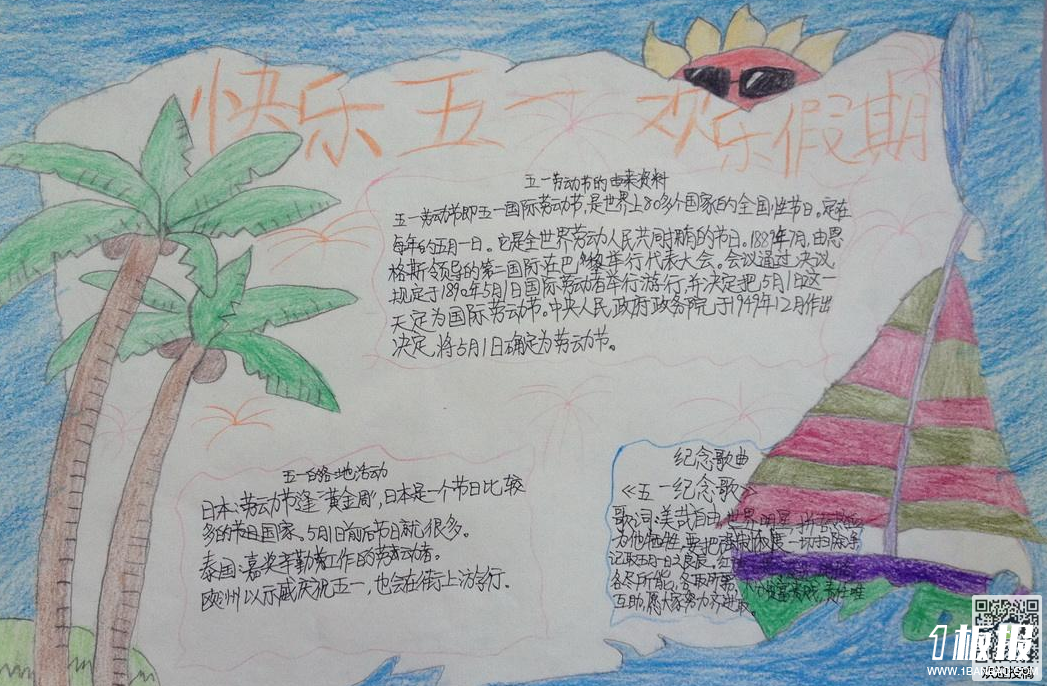 快乐五一 欢乐假期
五一劳动节的由来资料
五一劳动节即五一国际劳动节,是世界上80多个国家的全国性节日,定在
每年的五月一日。它是全世界劳动人民共同拥有的节日。1889年7月,由恩
格斯领导的第二国际在巴黎举行代表大会。会议通过决议
规定于1890年5月1日国际劳动者举行游行,并决定把5月1日这一
天定为国际劳动节。中央人民政府政务院于1949年12月作出
决定,将5月1日确定为劳动节。
五一的各地活动
日本:劳动节逢"黄金周",日本是一个节日比较
多的节日国家。5月1日前后节日就很多。
泰国:嘉奖辛勤劳工作的劳动者。
欧州以示威庆祝五一,也会在街上游行。
纪念歌曲
《五一纪念歌》
歌词:美哉自由,世界明星,拼吾热血
为他牺牲,要把强权制度一切扫除净
记取五月一日之良辰。红
各尽所能,各取所需,
互助,愿大家努力齐进取。
1板报
WWW.1BANBAO.COM
欢迎投稿